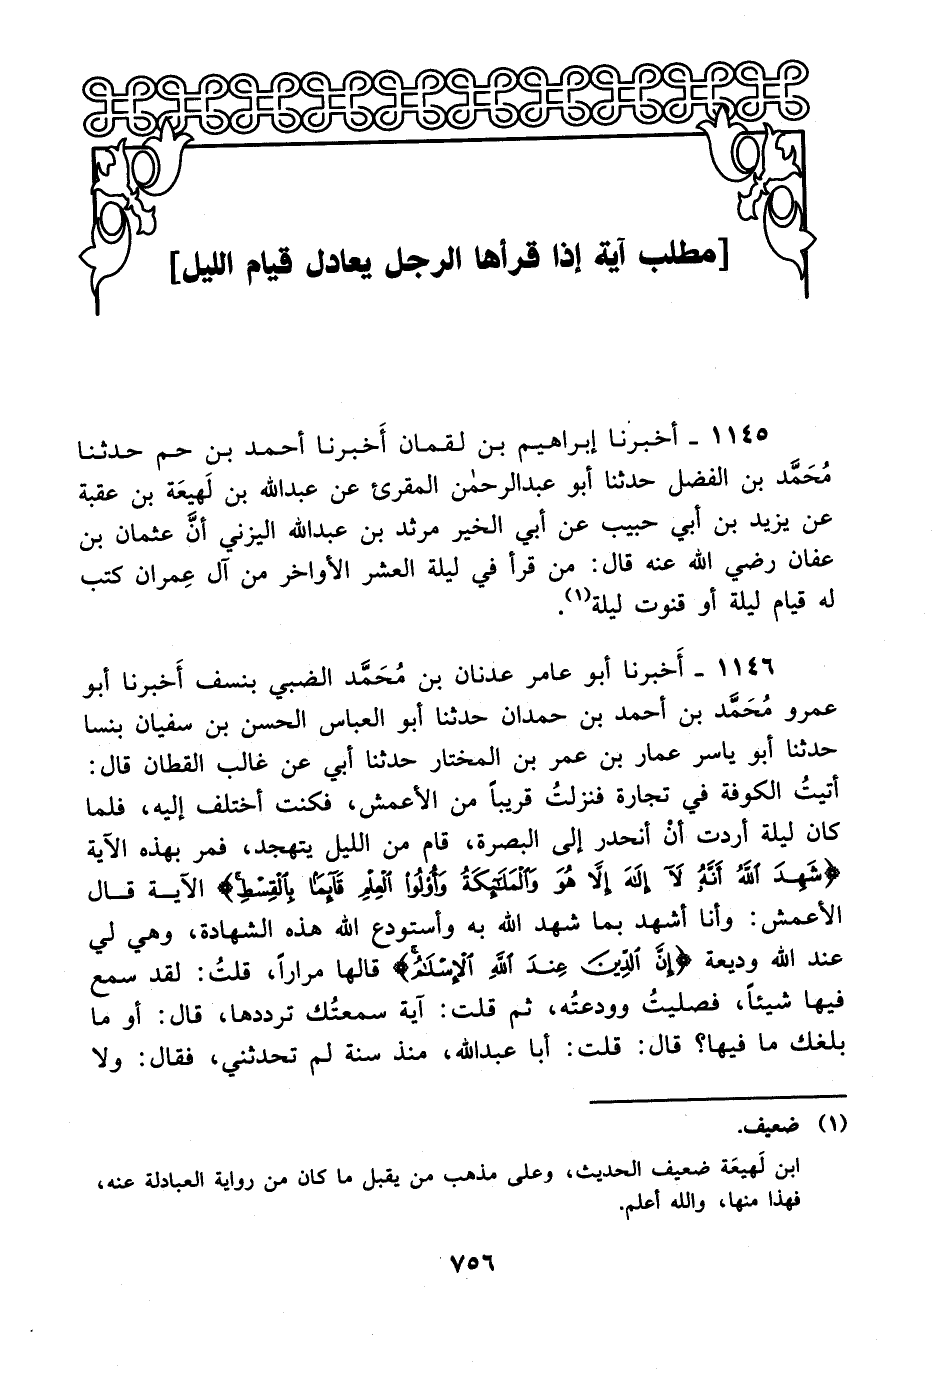 [مطلب آية إذا قرأها الرجل يعادل قيام الليل]
١١٤٥ ـ أخبرنا إبراهيم بن لقمان أَخبرنا أحمد بن حم حدثنا
مُحَمَّد بن الفضل حدثنا أبو عبدالرحمٰن المقرئ عن عبدالله بن لَهيعَة بن عقبة
عن يزيد بن أبي حبيب عن أبي الخير مرثد بن عبدالله اليزني أنَّ عثمان بن
عفان رضي الله عنه قال: من قرأ في ليلة العشر الأواخر من آل عِمران كتب
له قيام ليلة أو قنوت ليلة(١).
١١٤٦ ـ أَخبرنا أبو عامر عدنان بن مُحَمَّد الضبي بنسف أَخبرنا أبو
عمرو مُحَمَّد بن أحمد بن حمدان حدثنا أبو العباس الحسن بن سفيان بنسا
حدثنا أبو ياسر عمار بن عمر بن المختار حدثنا أبي عن غالب القطان قال:
أتيتُ الكوفة في تجارة فنزلتُ قريباً من الأعمش، فكنت أختلف إليه، فلما
كان ليلة أردت أنْ أنحدر إلى البصرة، قام من الليل يتهجد، فمر بهذه الآية
﴿شَهِدَ ٱللَّهُ أَنَّهُۥ لَآ إِلَٰهَ إِلَّا هُوَ وَٱلْمَلَٰٓئِكَةُ وَأُو۟لُوا۟ ٱلْعِلْمِ قَآئِمًۢا بِٱلْقِسْطِۚ﴾ الآية قال
الأعمش: وأنا أشهد بما شهد الله به وأستودع الله هذه الشهادة، وهي لي
عند الله وديعة ﴿إِنَّ ٱلدِّينَ عِندَ ٱللَّهِ ٱلْإِسْلَٰمُۗ﴾ قالها مراراً، قلتُ: لقد سمع
فيها شيئاً، فصليتُ وودعتُه، ثم قلت: آية سمعتُك ترددها، قال: أو ما
بلغك ما فيها؟ قال: قلت: أبا عبدالله، منذ سنة لم تحدثني، فقال: ولا
(١) ضعيف.
ابن لَهيعَة ضعيف الحديث، وعلى مذهب من يقبل ما كان من رواية العبادلة عنه،
فهذا منها، والله أعلم.
٧٥٦